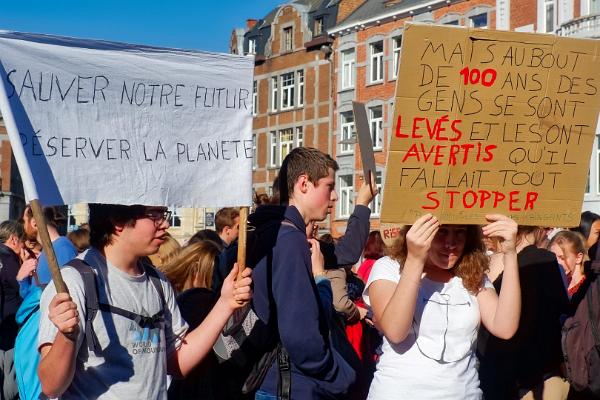 SAUVER NOTRE FUTUR
PRÉSERVER LA PLANETE
MAIS AU BOUT
DE 100 ANS DES
GENS SE SONT
LEVÉS ET LES ONT
AVERTIS QU'IL
FALLAIT TOUT
STOPPER
WORLD